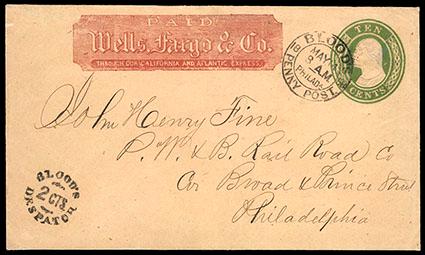 PAID
Wells, Fargo & Co.
THROUGH OUR CALIFORNIA AND ATLANTIC EXPRESS.
BLOOD'S
MAY
9 A.M.
PHILADA
PENNY POST
TEN
CENTS
John Henry Fine
P. W. & B. Rail Road Co
Cor Broad & Prince Street
Philadelphia
BLOOD'S
2 CTS.
DESPATCH